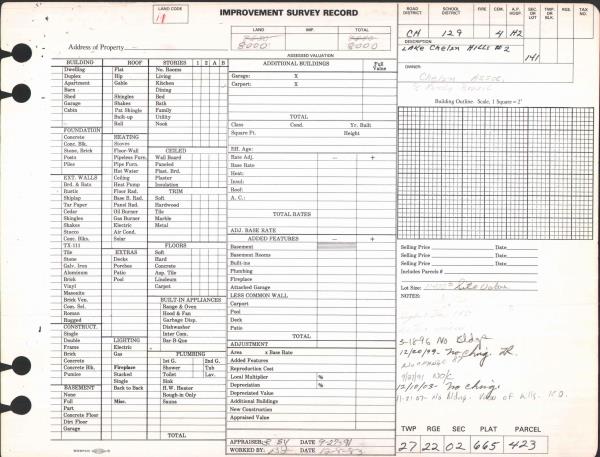 LAND CODE
11
IMPROVEMENT SURVEY RECORD
LAND IMP. TOTAL
8000 8000
Address of Property
ASSESSED VALUATION
ROAD DISTRICT SCHOOL DISTRICT FIRE CEM. A.P. HOSP. SEC OR LOT TWP OR BLK RGE. TAX NO.
CH 129 4 H2
DESCRIPTION
LAKE CHELAN HILLS #2
141
OWNER:
Chelan Assoc.
Building Outline. Scale, 1 Square = 2'
BUILDING ROOF STORIES 1 2 A B
Dwelling Flat No. Rooms
Duplex Hip Living
Apartment Gable Kitchen
Barn Dining
Shed Shingles Bed
Garage Shakes Bath
Cabin Pat Shingle Family
Built-up Utility
Roll Nook
FOUNDATION
Concrete HEATING
Conc. Blk. Stoves CEILED
Stone, Brick Floor-Wall Wall Board
Posts Pipeless Furn. Paneled
Piles Pipe Furn. Plast. Brd.
Hot Water Plaster
EXT. WALLS Ceiling Insulation
Brd. & Bats Heat Pump TRIM
Rustic Floor Rad. Soft
Shiplap Base B. Rad. Hardwood
Tar Paper Panel Rad. Tile
Cedar Oil Burner Marble
Shingles Gas Burner Metal
Shakes Electric
Stucco Air Cond.
Conc. Blks. Solar
TX-111 FLOORS
Tile EXTRAS Soft
Stone Decks Hard
Galv. Iron Porches Concrete
Aluminum Patio Asp. Tile
Brick Pool Linoleum
Vinyl Carpet
Masonite
Brick Ven. BUILT-IN APPLIANCES
Com. Sel. Range & Oven
Roman Hood & Fan
Rugged Garbage Disp.
CONSTRUCT. Dishwasher
Single Inter Com.
Double LIGHTING Bar-B-Que
Frame Electric
Brick Gas PLUMBING
Concrete 1st G. 2nd G.
Concrete Blk. Fireplace Shower Tub
Pumice Stacked Toilet Lav.
Single Sink
BASEMENT Back to Back H.W. Heater
None Rough-in Only
Full Misc. Sauna
Part
Concrete Floor
Dirt Floor
Garage TOTAL
ADDITIONAL BUILDINGS Full Value
Garage: X
Carport: X
TOTAL
Class Cond. Yr. Built
Square Ft. Height
Eff. Age:
Rate Adj. − +
Base Rate
Heat:
Insul:
Roof:
A. C.:
TOTAL RATES
ADJ. BASE RATE
ADDED FEATURES − +
Basement
Basement Rooms
Built-ins
Plumbing
Fireplace
Attached Garage
LESS COMMON WALL
Carport
Pool
Deck
Patio
TOTAL
ADJUSTMENT
Area x Base Rate
Added Features
Reproduction Cost
Local Multiplier %
Depreciation %
Depreciated Value
Additional Buildings
New Construction
Appraised Value
APPRAISER BY DATE 9-27-91
WORKED BY: DATE 12-8-83
Selling Price Date
Selling Price Date
Selling Price Date
Includes Parcels #
Lot Size:
NOTES:
5-1896 No Bldgs
12/20/99- No chng.
No change
9/27/91 No/c
12/10/03- No chng.
11-21-07- No Bldng. View of Hills.
TWP RGE SEC PLAT PARCEL
27 22 02 665 423